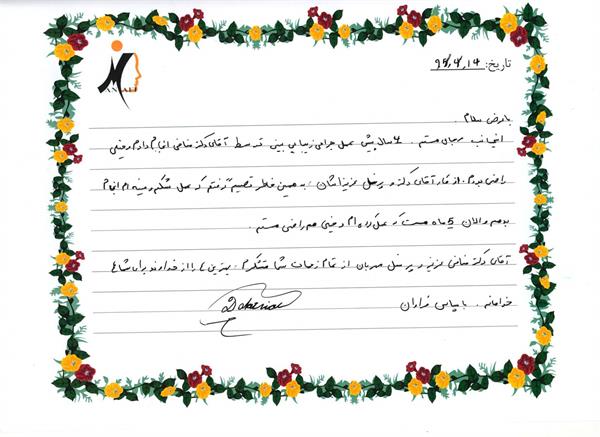 MANSALI
تاریخ: ۹۵/۴/۱۴
با عرض سلام .
اینجانب هستم . ۶ سال پیش عمل جراحی زیبایی بینی توسط آقای دکتر انجام دادم و خیلی
راضی بودم . از کار آقای دکتر و پرسنل عزیزاشان . به همین خاطر تصمیم گرفتم که عمل شکم و سینه ام انجام
بدهم و الان 5 ماه هست که عمل کرده ام و خیلی هم راضی هستم .
آقای دکتر عزیز و پرسنل مهربان از تمام زحمات شما متشکرم . بهترین ها را از خداوند برای شما
خواهانم . با سپاس فراوان